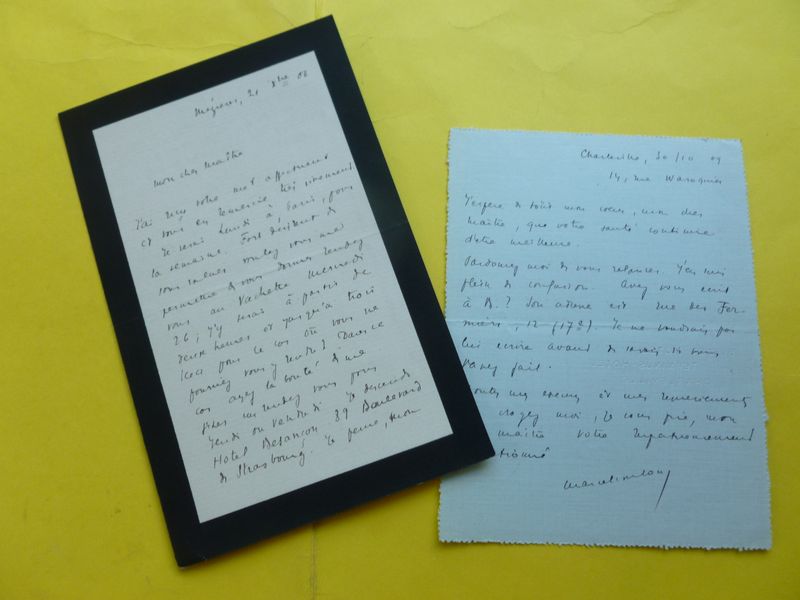 Mézières, 21 8bre 08
mon cher maître
J'ai reçu votre mot affectueux
et vous en remercie très vivement.
Je serai lundi à Paris, pour
la semaine. Fort désireux de
vous voulez vous me
permettre de vous donner rendez
vous au Vachette mercredi
26 ; j'y serai à partir de
deux heures et jusqu'à trois
ceci pour le cas où vous ne
pourriez vous y rendre ? Dans ce
cas ayez la bonté d'une
un rendez vous pour
jeudi ou vendredi. Je descends
Hotel Besançon 39 Boulevard
de Strasbourg. Je
Charleville, 30/10 09
14, rue Waroquier
J'espère de tout mon cœur, mon cher
maître, que votre santé continue
d'être meilleure.
Pardonnez moi de vous relancer. J'en suis
plein de confusion. Avez vous écrit
à B. ? Son adresse est rue des Fer
miers, 12 (17e). Je ne voudrais pas
lui écrire avant de savoir si vous
l'avez fait.
toutes mes excuses et mes remerciements
croyez moi, je vous prie, mon
maître votre